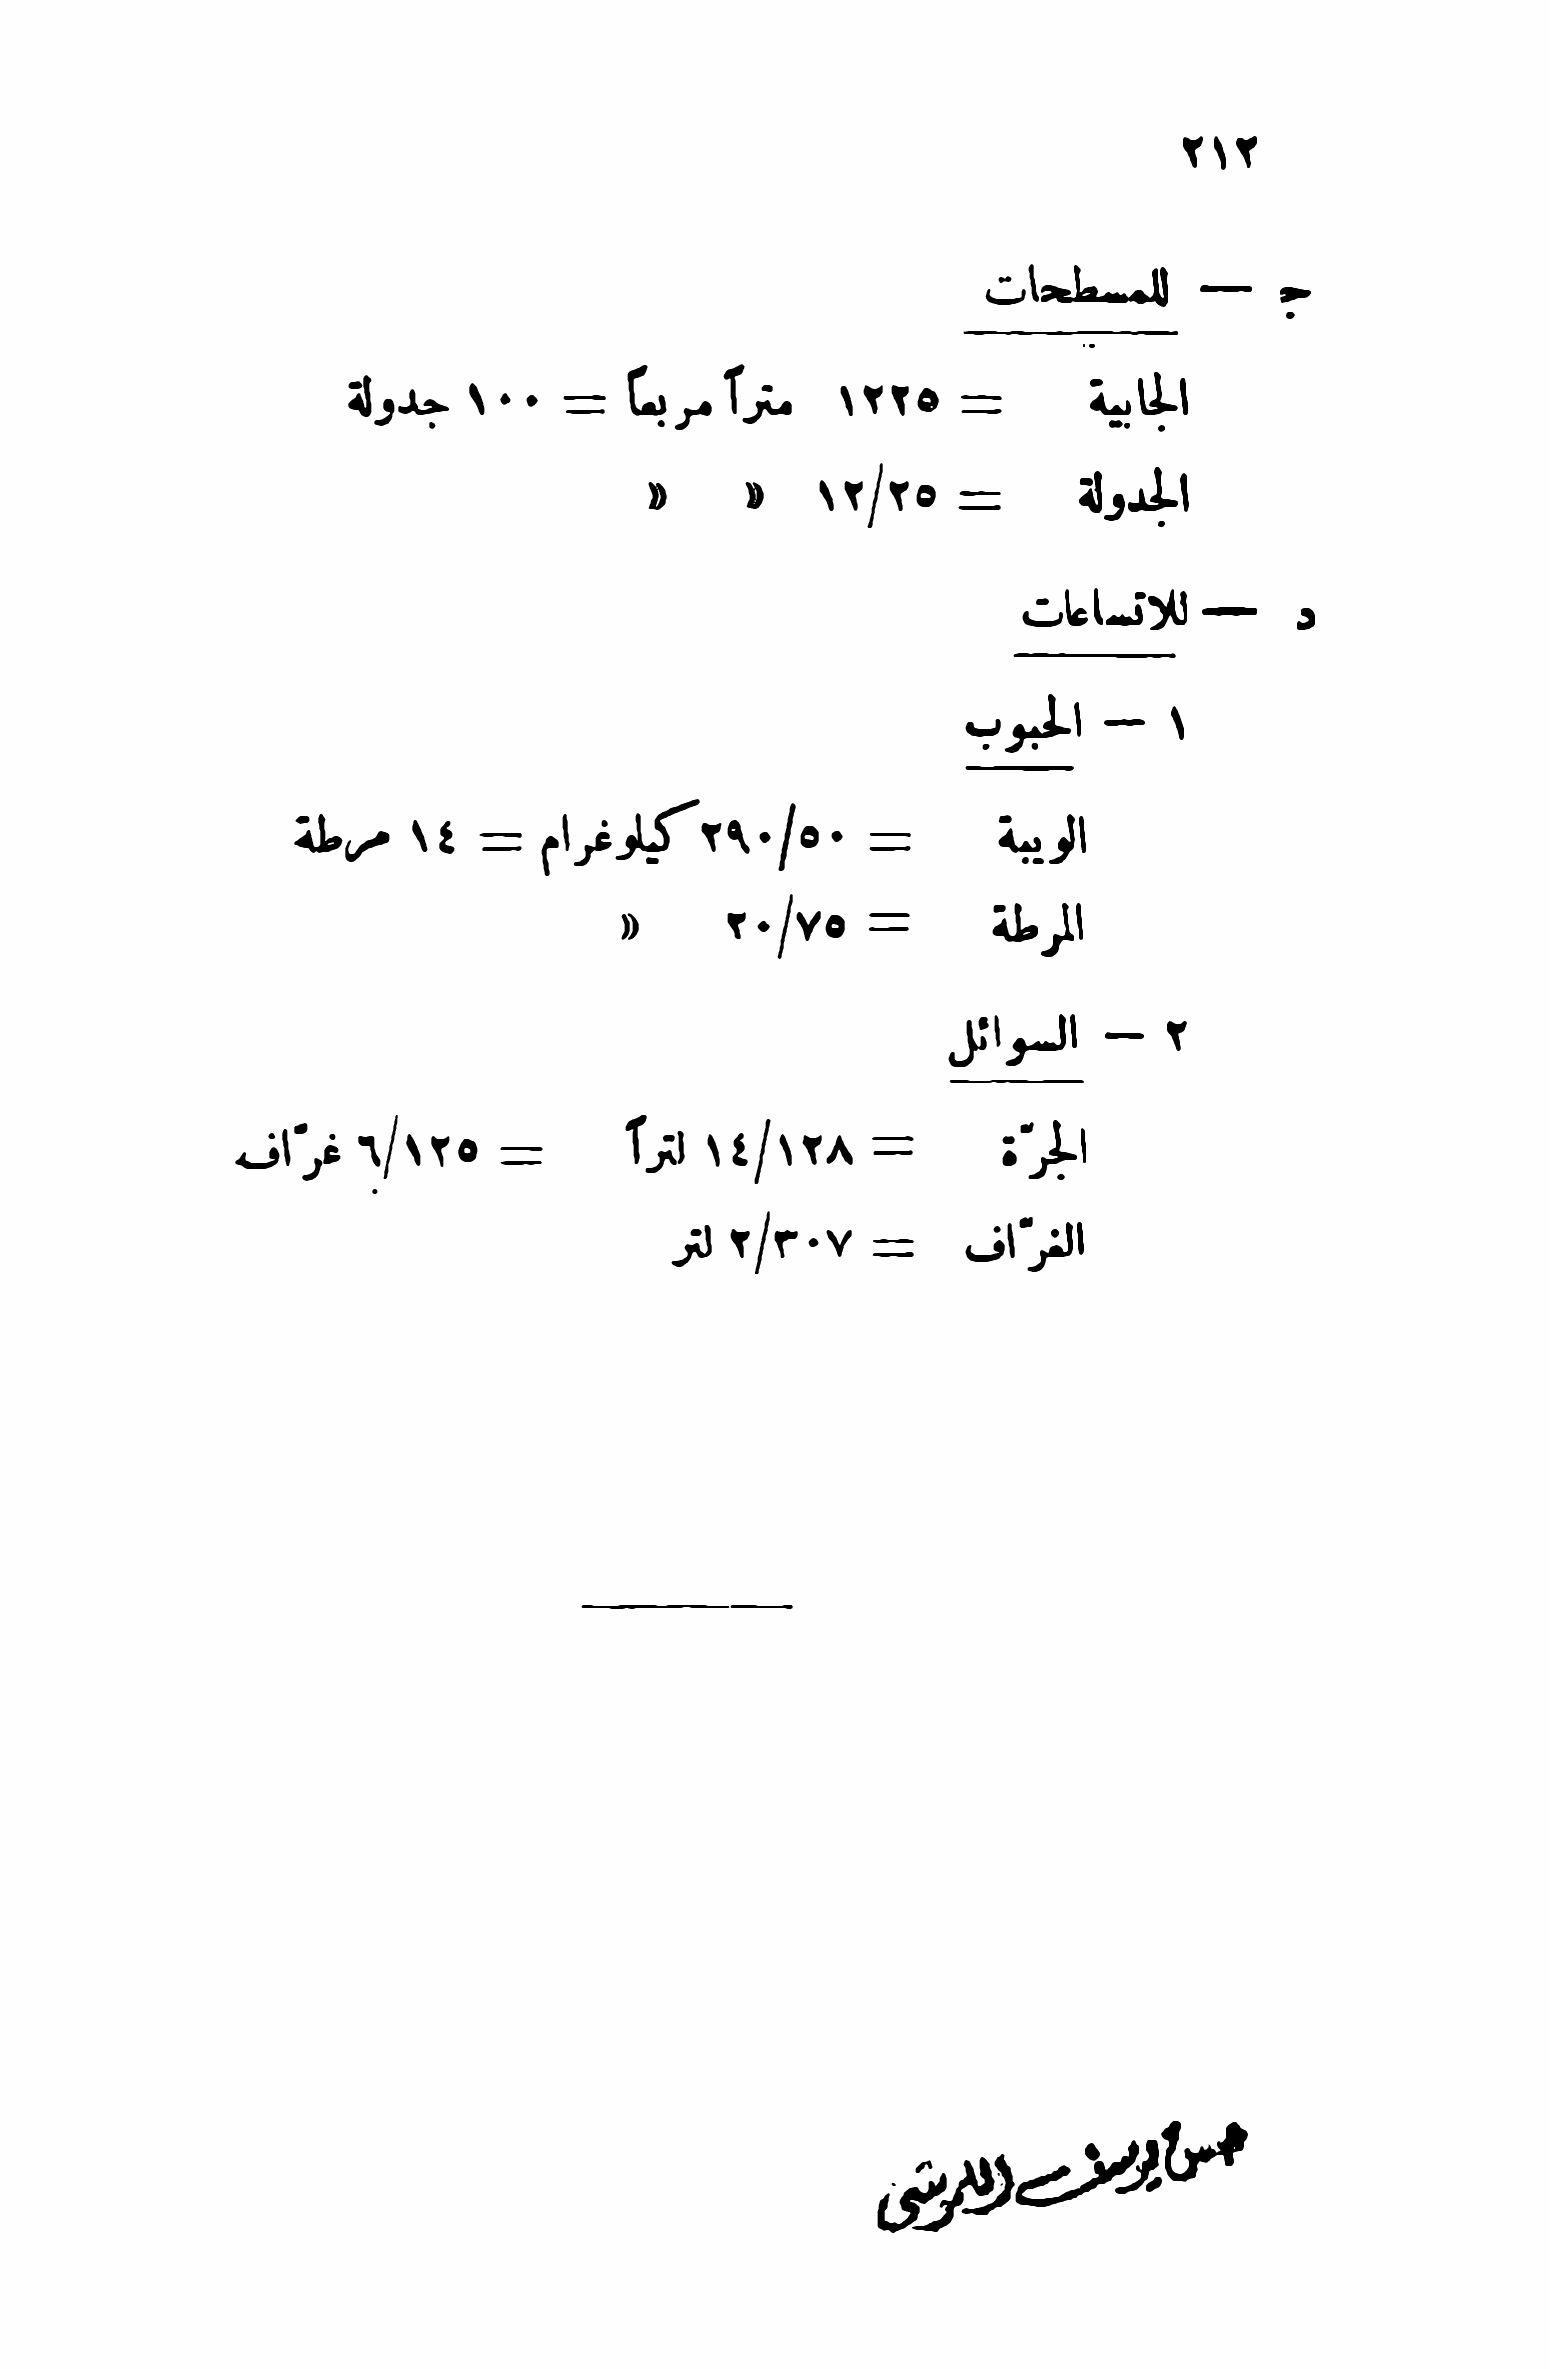 ٢١٢
ج — للمسطحات
الجابية = ١٢٢٥ متراً مربعاً = ١٠٠ جدولة
الجدولة = ١٢/٢٥ » »
د — للاتساعات
١ — الحبوب
الويبة = ٢٩٠/٥٠ كيلوغرام = ١٤ مرطة
المرطة = ٢٠/٧٥ »
٢ — السوائل
الجرّة = ١٤/١٢٨ لتراً = ٦/١٢٥ غرّاف
الغرّاف = ٢/٣٠٧ لتر
حسن يوسف